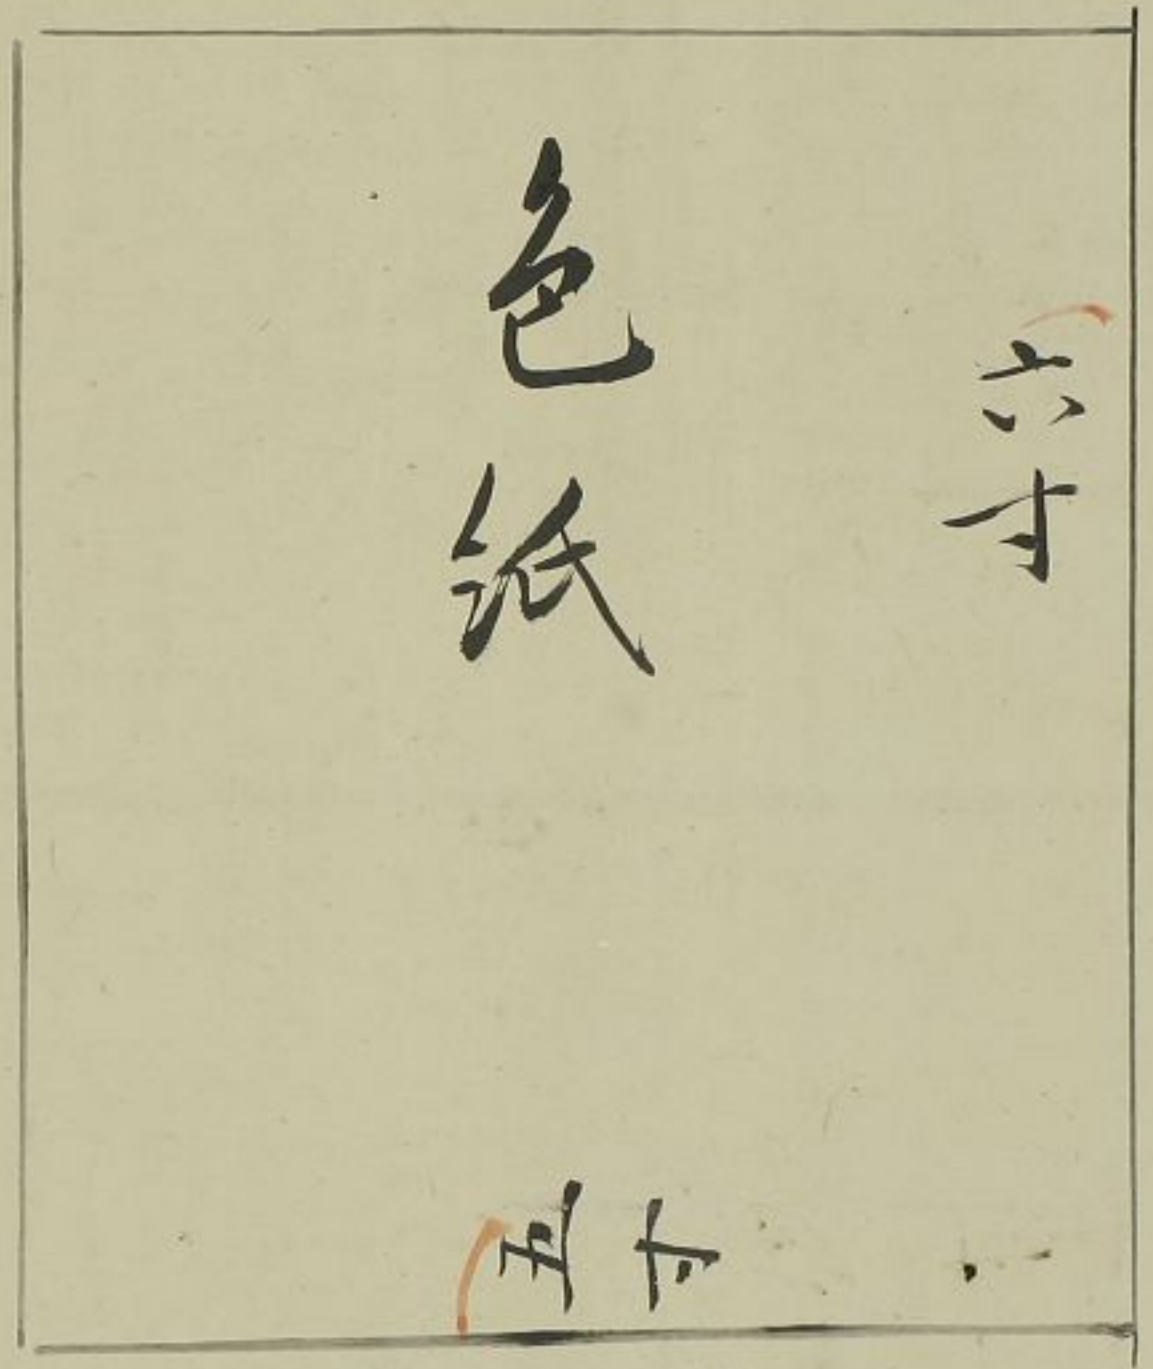 六寸
色紙
五寸